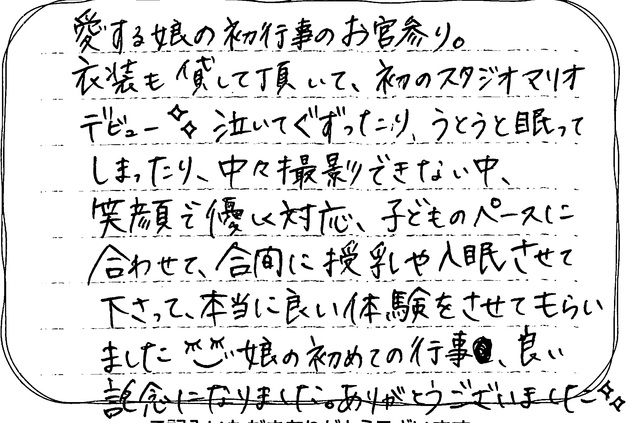 愛する娘の初行事のお宮参り。
衣装も貸して頂いて、初のスタジオマリオ
デビュー✨ 泣いてぐずったり、うとうと眠って
しまったり、中々撮影できない中、
笑顔で優しく対応、子どものペースに
合わせて、合間に授乳や入眠させて
下さって、本当に良い体験をさせてもらい
ました 娘の初めての行事、良い
記念になりました。ありがとうございました✨